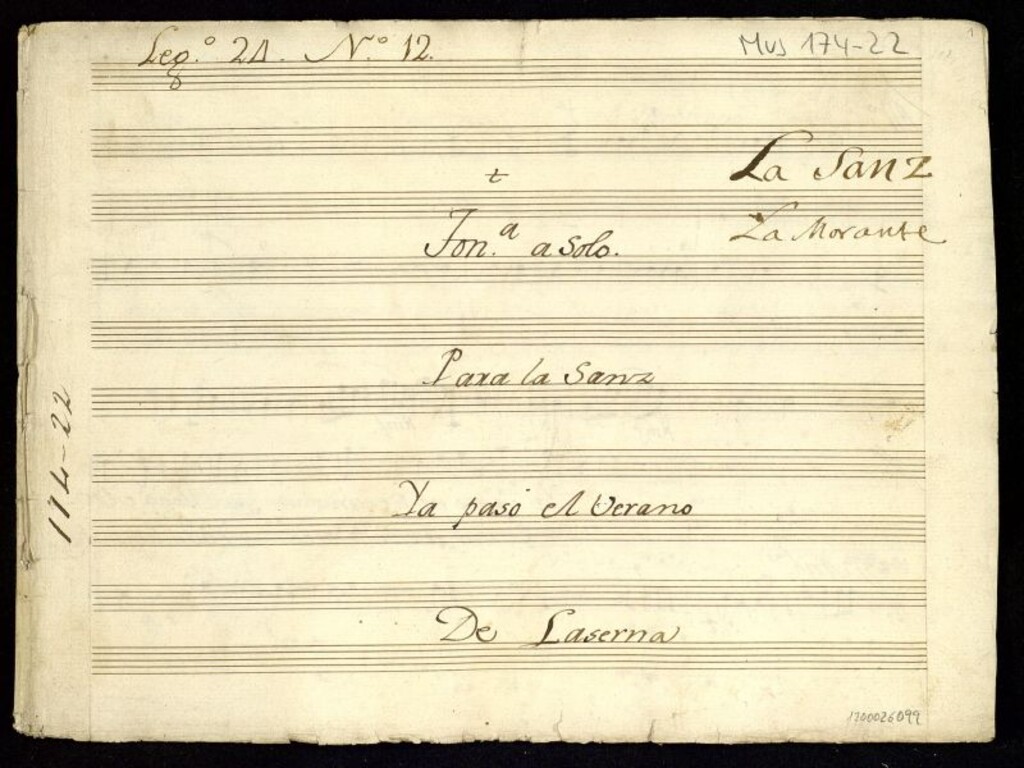 Leg.º 24. N.º 12.
Mus 174-22
La Sanz
t
La Morante
Ton.ª a solo.
Para la Sanz
174-22
Ya pasó el Verano
De Laserna
1200026099